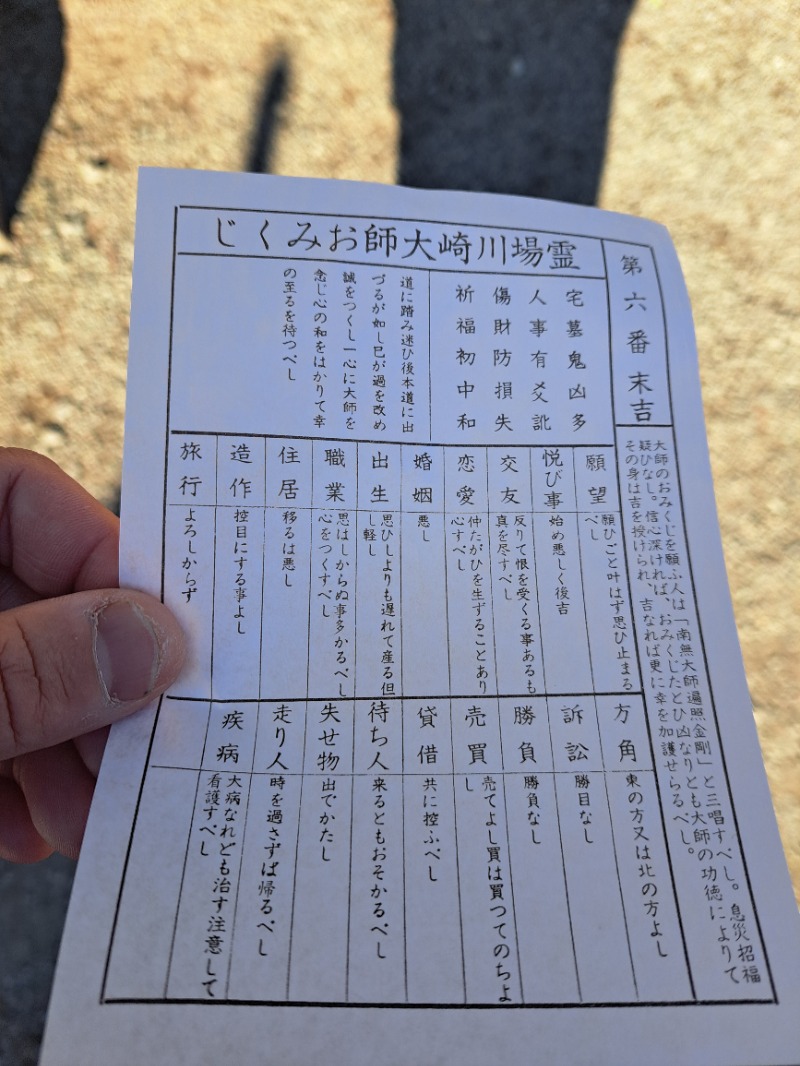 第六番 末吉
大師のおみくじを願ふ人は「南無大師遍照金剛」と三唱すべし。息災招福
疑ひなし。信心深ければ、おみくじたとひ凶なりとも大師の功徳によりて
その身は吉を授けられ、吉なれば更に幸を加護せらるべし。
霊場川崎大師おみくじ
宅墓鬼凶多
人事有爻訛
傷財防損失
祈福初中和
道に踏み迷ひ後本道に出
づるが如し巳が過を改め
誠をつくし一心に大師を
念じ心の和をはかりて幸
の至るを待つべし
願望
願ひごと叶はず思ひ止まる
べし
悦び事
始め悪しく後吉
交友
反りて恨を受くる事あるも
真を尽すべし
恋愛
仲たがひを生ずることあり
心すべし
婚姻
悪し
出生
思ひしよりも遅れて産る但
し軽し
職業
思はしからぬ事多かるべし
心をつくすべし
住居
移るは悪し
造作
控目にする事よし
旅行
よろしからず
方角
東の方又は北の方よし
訴訟
勝目なし
勝負
勝負なし
売買
売てよし買は買つてのちよ
し
貸借
共に控ふべし
待ち人
来るともおそかるべし
失せ物
出でかたし
走り人
時を過さずば帰るべし
疾病
大病なれども治す注意して
看護すべし